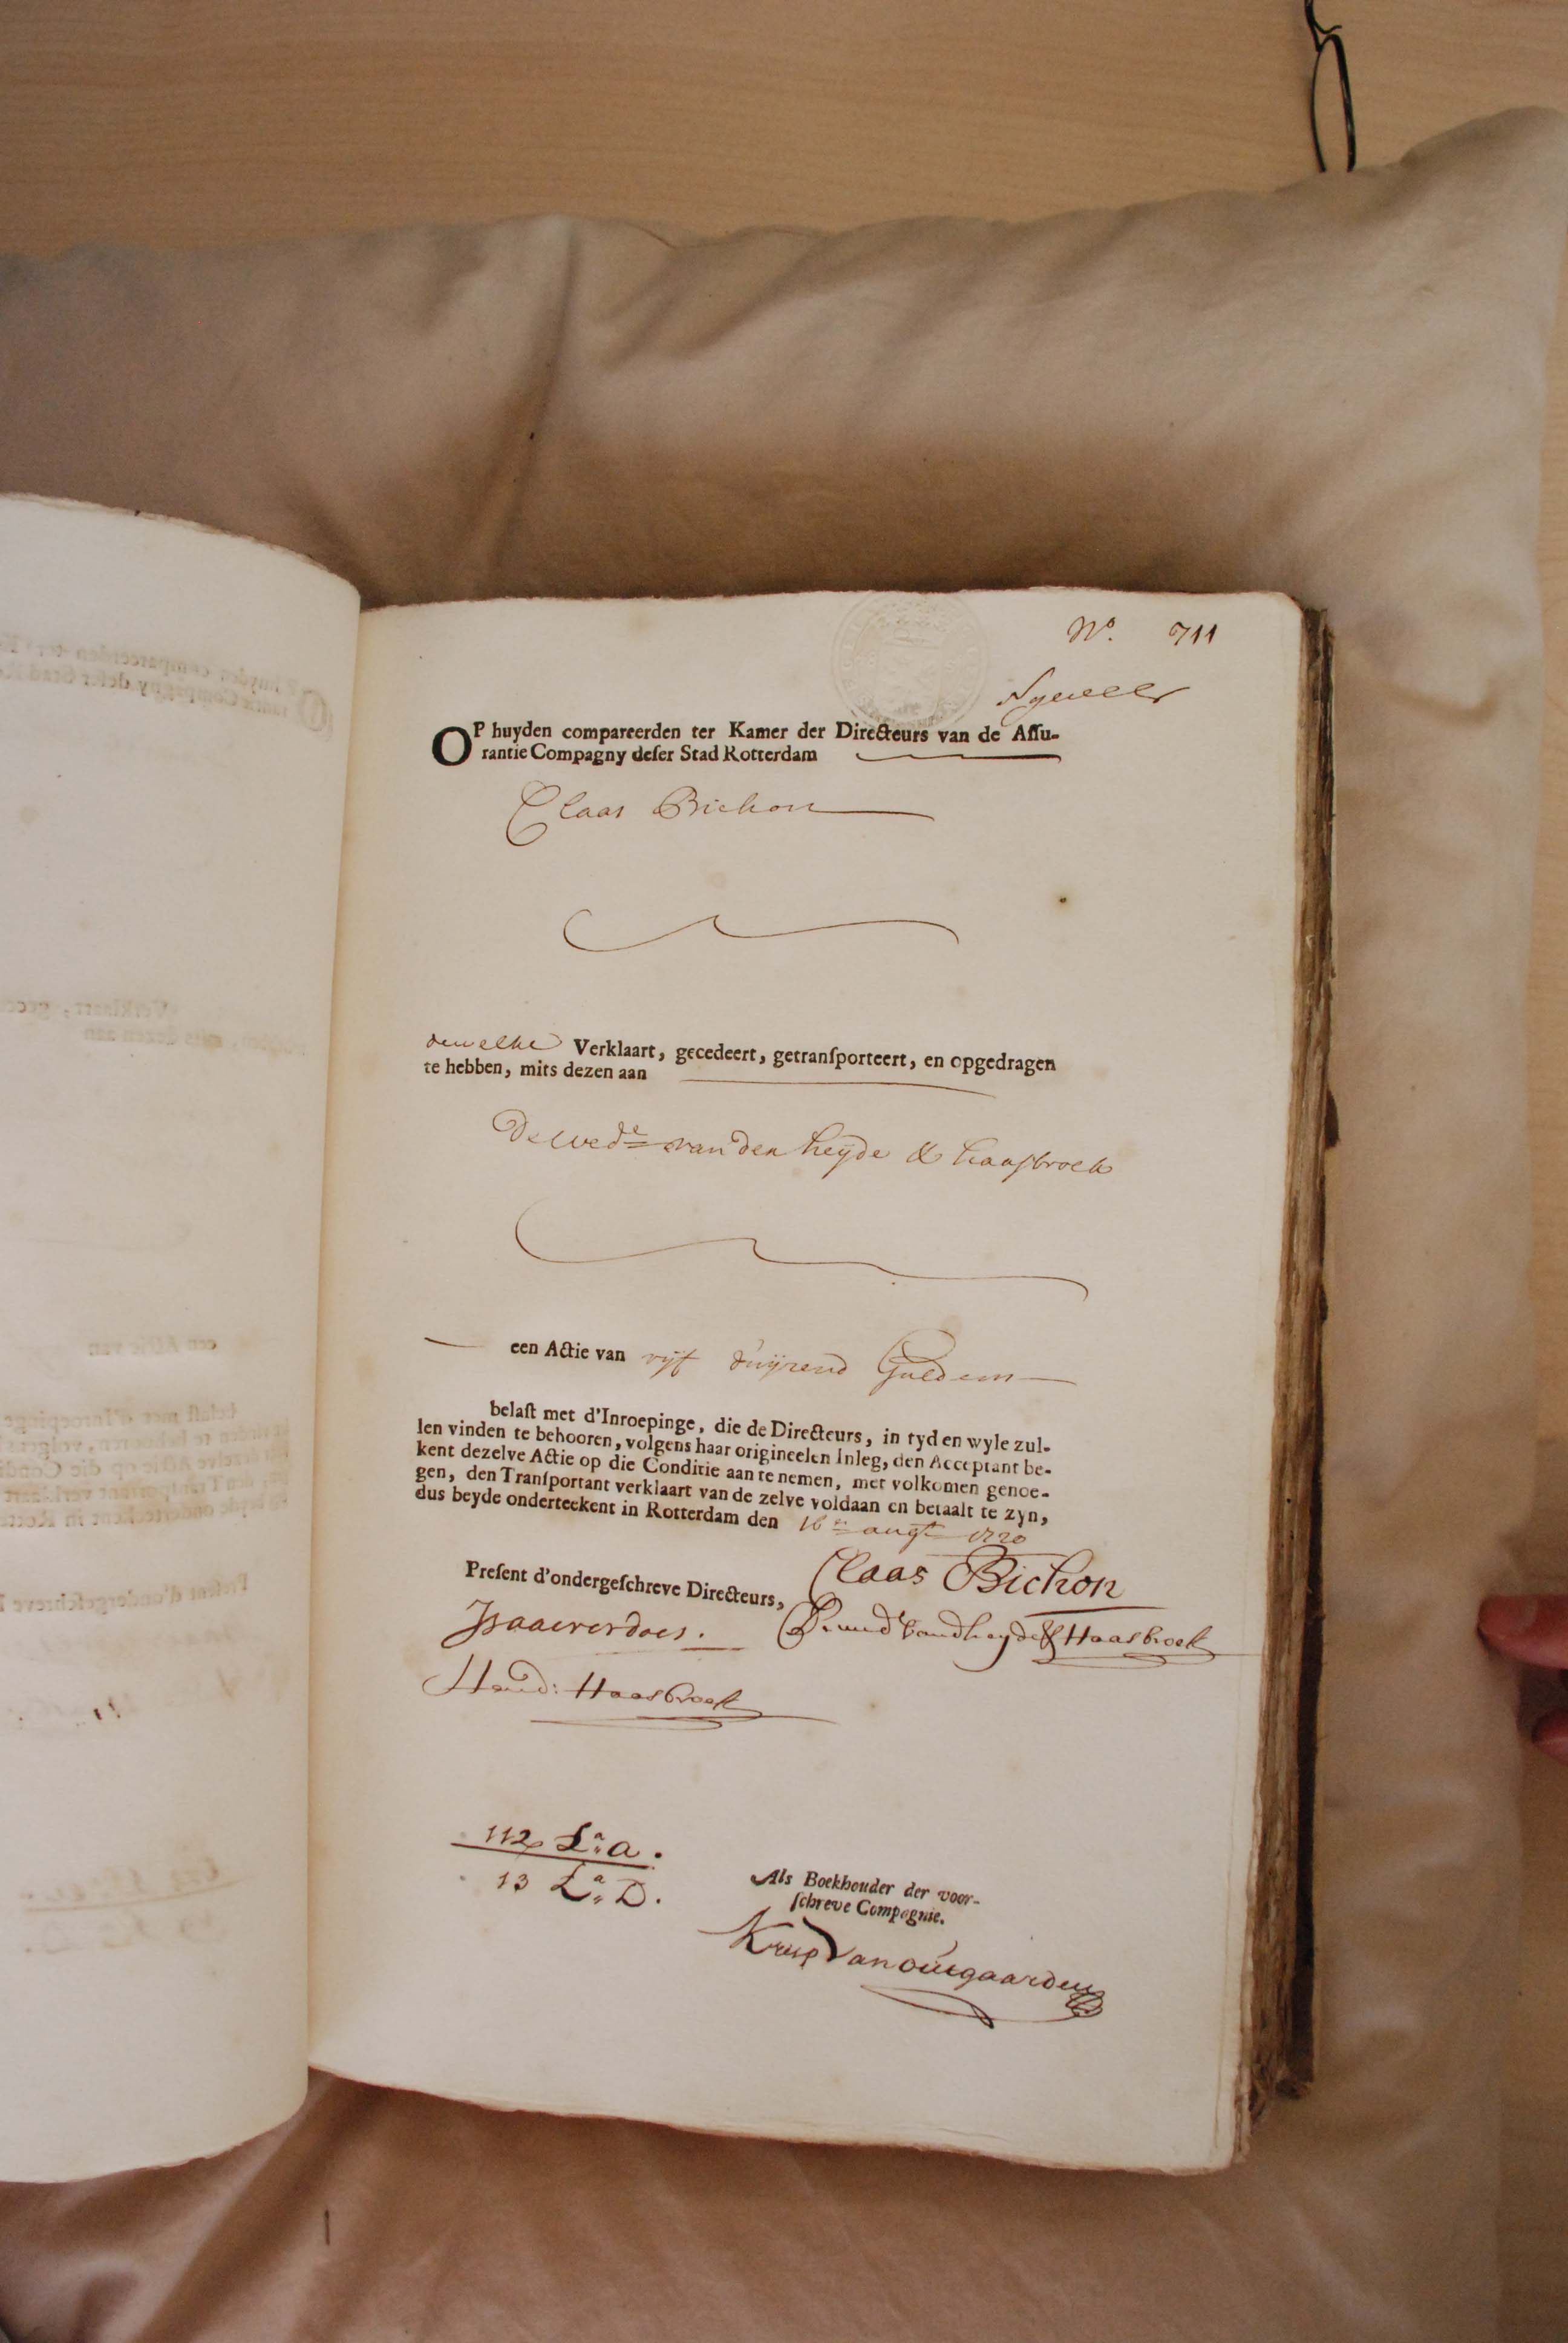 No. 711
OP huyden compareerden ter Kamer der Directeurs van de Assu-
rantie Compagny deser Stad Rotterdam
Claas Bichon
dewelke Verklaart, gecedeert, getransporteert, en opgedragen
te hebben, mits dezen aan
De wede van den heyde & haasbroek
een Actie van vijf duijzend Guldens
belast met d'Inroepinge, die de Directeurs, in tyd en wyle zul-
len vinden te behooren, volgens haar origineelen Inleg, den Acceptant be-
kent dezelve Actie op die Conditie aan te nemen, met volkomen genoe-
gen, den Transportant verklaart van de zelve voldaan en betaalt te zyn,
dus beyde onderteekent in Rotterdam den 16en augt 1720
Claas Bichon
Present d'ondergeschreve Directeurs,
De wed vand heyde & Haasbroek
Isaac verdoes.
Hend: Haasbroek
112 La A.
13 La D.
Als Boekhouder der voor-
schreve Compagnie.